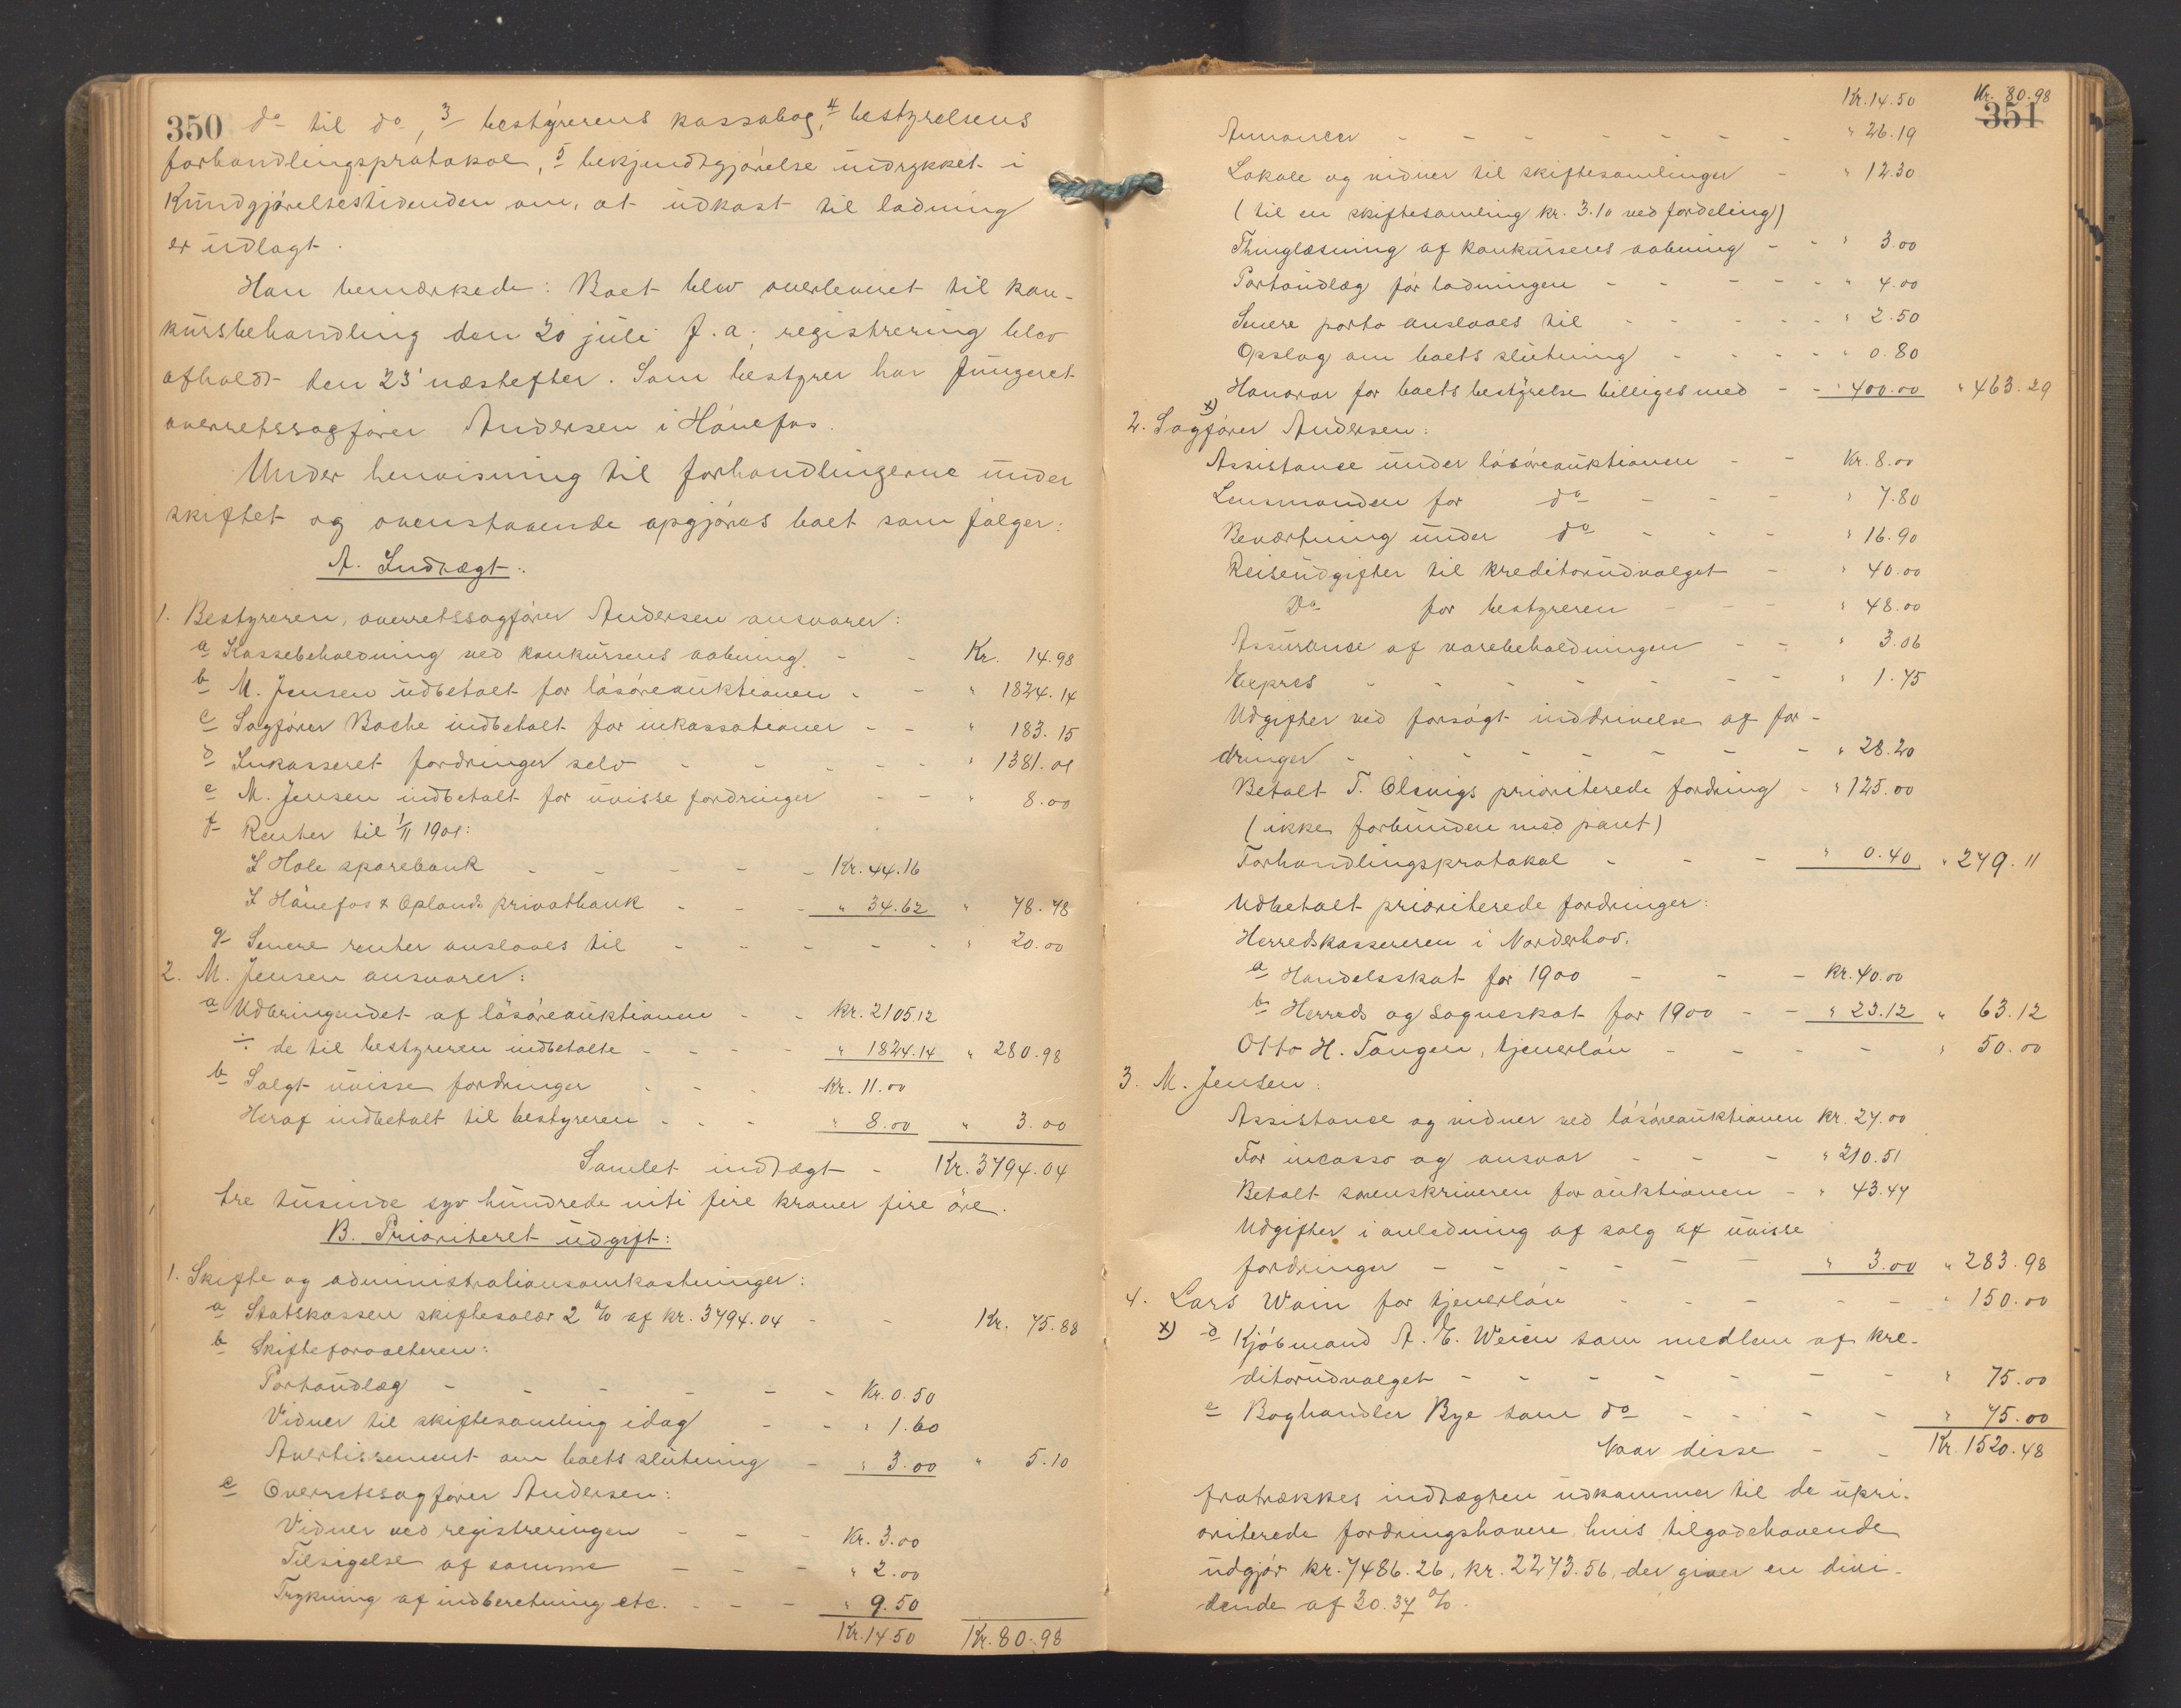 350 do til do, 3 bestyrerens kassabog, 4 bestyrelsens
forhandlingsprotokol, 5 bekjendtgjørelse indrykket i
Kundgjørelsestidenden om, at udkast til ladning
er udlagt.
Han bemærkede: Boet blev overleveret til kon-
kursbehandling den 20 juli f.a.; registrering blev
afholdt den 23' næstefter. Som bestyrer har fungeret
overretssagfører Andersen i Hønefos.
Under henvisning til forhandlingerne under
skiftet og ovenstaaende opgjøres boet som følger:
A. Indtægt:
1. Bestyreren, overretssagfører Andersen ansvarer:
a Kassebeholdning ved konkursens aabning - - Kr. 14.98
b M. Jensen udbetalt for løsøreauktionen - - " 1824.14
c Sagfører Bache indbetalt for inkassationer - - " 183.15
d Inkasseret fordringer selv - - - - - " 1381.01
e M. Jensen indbetalt for uvisse fordringer - - " 8.00
f Renter til 1/11 1901:
I Hole sparebank - - - - - Kr. 44.16
I Hønefos & Oplands privatbank - - - " 34.62 " 78.78
g Senere renter anslaaes til - - - - - " 20.00
2. M. Jensen ansvarer:
a Udbringendet af løsøreauktionen - - Kr. 2105.12
÷ de til bestyreren indbetalte - - - - " 1824.14 " 280.98
b Solgt uvisse fordringer - - - Kr. 11.00
Heraf indbetalt til bestyreren - - - " 8.00 " 3.00
Samlet indtægt - Kr. 3794.04
tre tusinde syv hundrede niti fire kroner fire øre.
B. Prioriteret udgift:
1. Skifte og administrationsomkostninger:
a Statskassen skiftesalær 2 % af kr. 3794.04 - - Kr. 75.88
b Skifteforvalteren:
Portoudlæg - - - - - - Kr. 0.50
Vidner til skiftesamling idag - - " 1.60
Avertissement om boets slutning - " 3.00 " 5.10
c Overretssagfører Andersen:
Vidner ved registreringen - - - Kr. 3.00
Tilsigelse af samme - - - " 2.00
Trykning af indberetning etc. - - - " 9.50
Kr. 14.50 Kr. 80.98
Kr. 14.50 Kr. 80.98
351
Annoncer - - - - - - - " 26.19
Lokale og vidner til skiftesamlinger - " 12.30
(til en skiftesamling kr. 3.10 ved fordeling)
Thinglæsning af konkursens aabning - - " 3.00
Portoudlæg før ladningen - - - - - " 4.00
Senere porto anslaaes til - - - - - " 2.50
Opslag om boets slutning - - - - " 0.80
Honorar for boets bestyrelse billiges med - - " 400.00 " 463.29
x)
2. Sagfører Andersen:
Assistance under løsøreauktionen - - Kr. 8.00
Lensmanden for do - - - " 7.80
Beværtning under do - - - " 16.90
Reiseudgifter til kreditorudvalget - " 40.00
Do for bestyreren - - - " 48.00
Assurance af varebeholdningen - - " 3.06
Expres - - - - - - - " 1.75
Udgifter ved forsøgt inddrivelse af for-
dringer - - - - - - - " 28.20
Betalt T. Olsvigs prioriterede fordring - " 125.00
(ikke forbunden med pant)
Forhandlingsprotokol - - - " 0.40 " 279.11
Udbetalt prioriterede fordringer:
Herredskassereren i Norderhov.
a Handelsskat for 1900 - - - Kr. 40.00
b Herreds og sogneskat for 1900 - - " 23.12 " 63.12
Otto H. Tangen, tjenerløn - - - - " 50.00
3. M. Jensen:
Assistance og vidner ved løsøreauktionen Kr. 27.00
For incasso og ansvar - - - " 210.51
Betalt sorenskriveren for auktionen - " 43.47
Udgifter i anledning af salg af uvisse
fordringer - - - - - - " 3.00 " 283.98
4. Lars Woin for tjenerløn - - - - - " 150.00
x) d Kjøbmand A. E. Weien som medlem af kre-
ditorudvalget - - - - - - - " 75.00
e Boghandler Bye som do - - - - - " 75.00
Naar disse - - Kr. 1520.48
fratrækkes indtægten udkommer til de upri-
oriterede fordringshavere, hvis tilgodehavende
udgjør kr. 7486.26, kr. 2273.56, der giver en divi-
dende af 30.37 %.